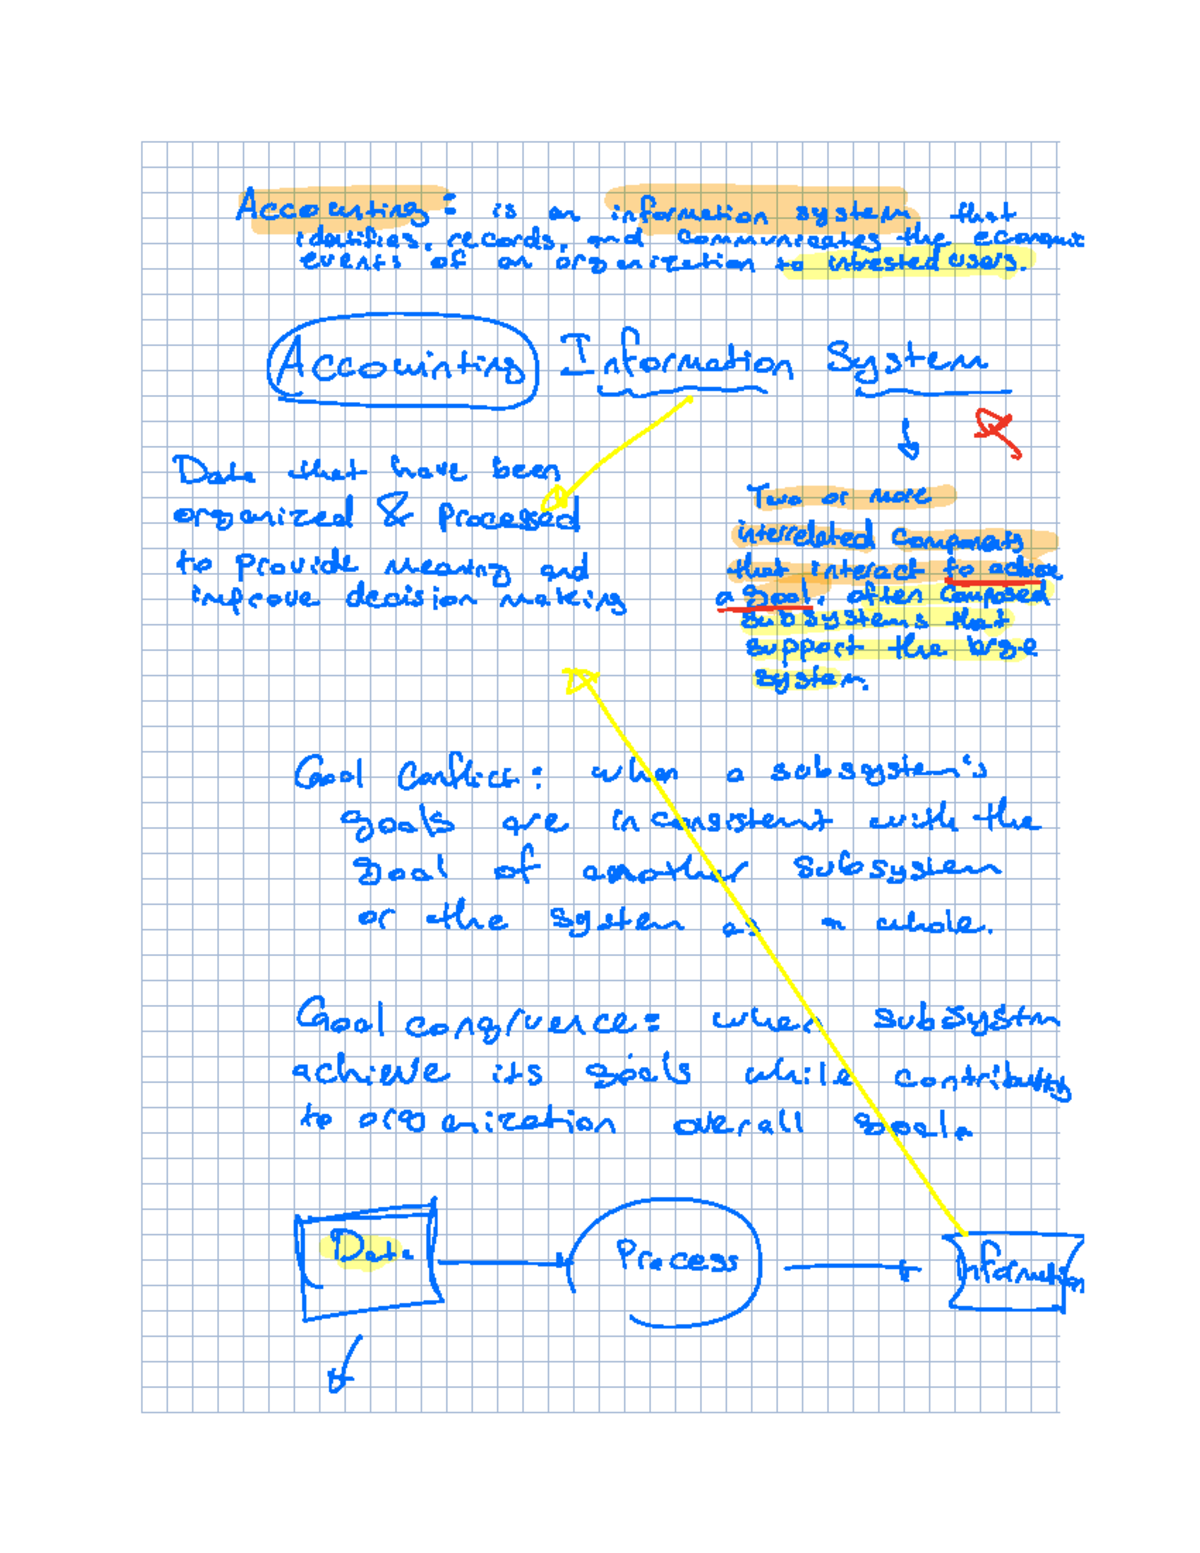 Accounting: is an information system that
identifies, records, and communicates the economic
events of an organization to intrested users.
Accounting Information System
Data that have been
organized & Processed
to provide meaning and
improve decision making
Two or more
interrelated components
that interact to achieve
a goal, often composed
subsystems that
support the large
system.
Goal Conflict: when a subsystem's
goals are inconsistent with the
goal of another subsystem
or the system as a whole.
Goal congruence: when subsystm
achieve its goals while contributing
to organization overall goal.
Data
Process
Information